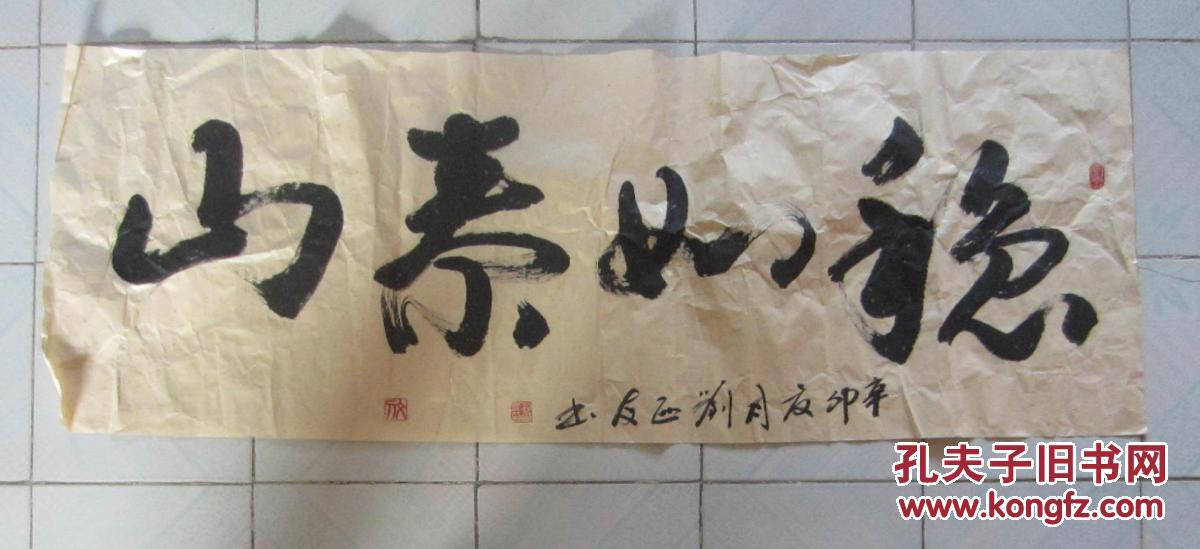 稳如泰山
辛卯夏月刘正友书
孔夫子旧书网
www.kongfz.com